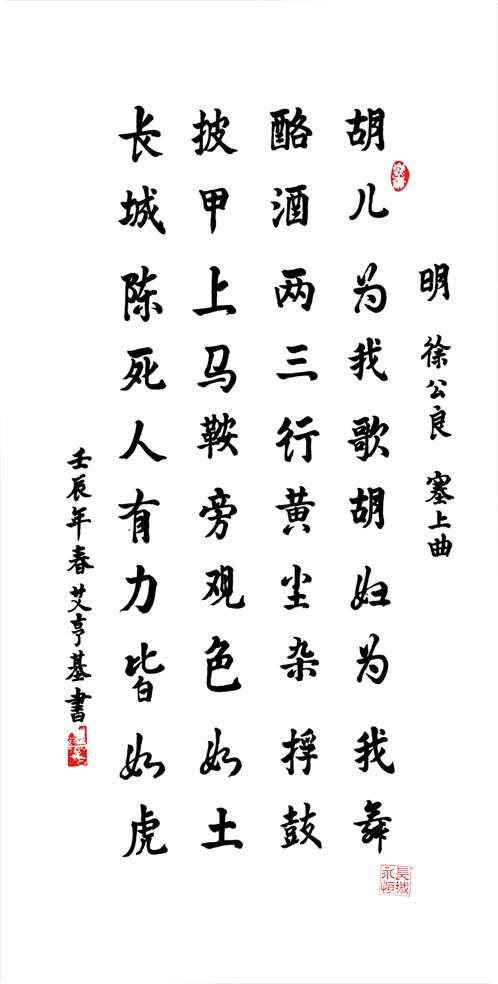 明 徐公良 塞上曲
胡儿为我歌胡妇为我舞
酪酒两三行黄尘杂捊鼓
披甲上马鞍旁观色如土
长城陈死人有力皆如虎
壬辰年春艾亨基書
長城
永恒